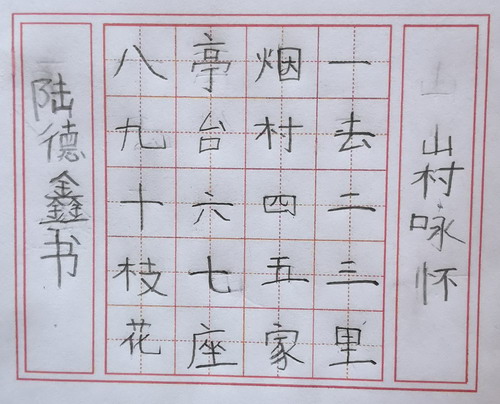 山村咏怀
一去二三里
烟村四五家
亭台六七座
八九十枝花
陆德鑫书